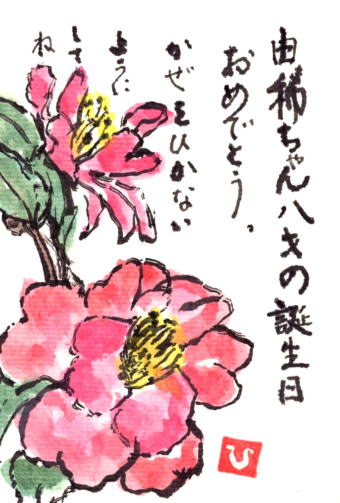 由稀ちゃん八才の誕生日
おめでとう。
かぜをひかない
ように
して
ね
ひ